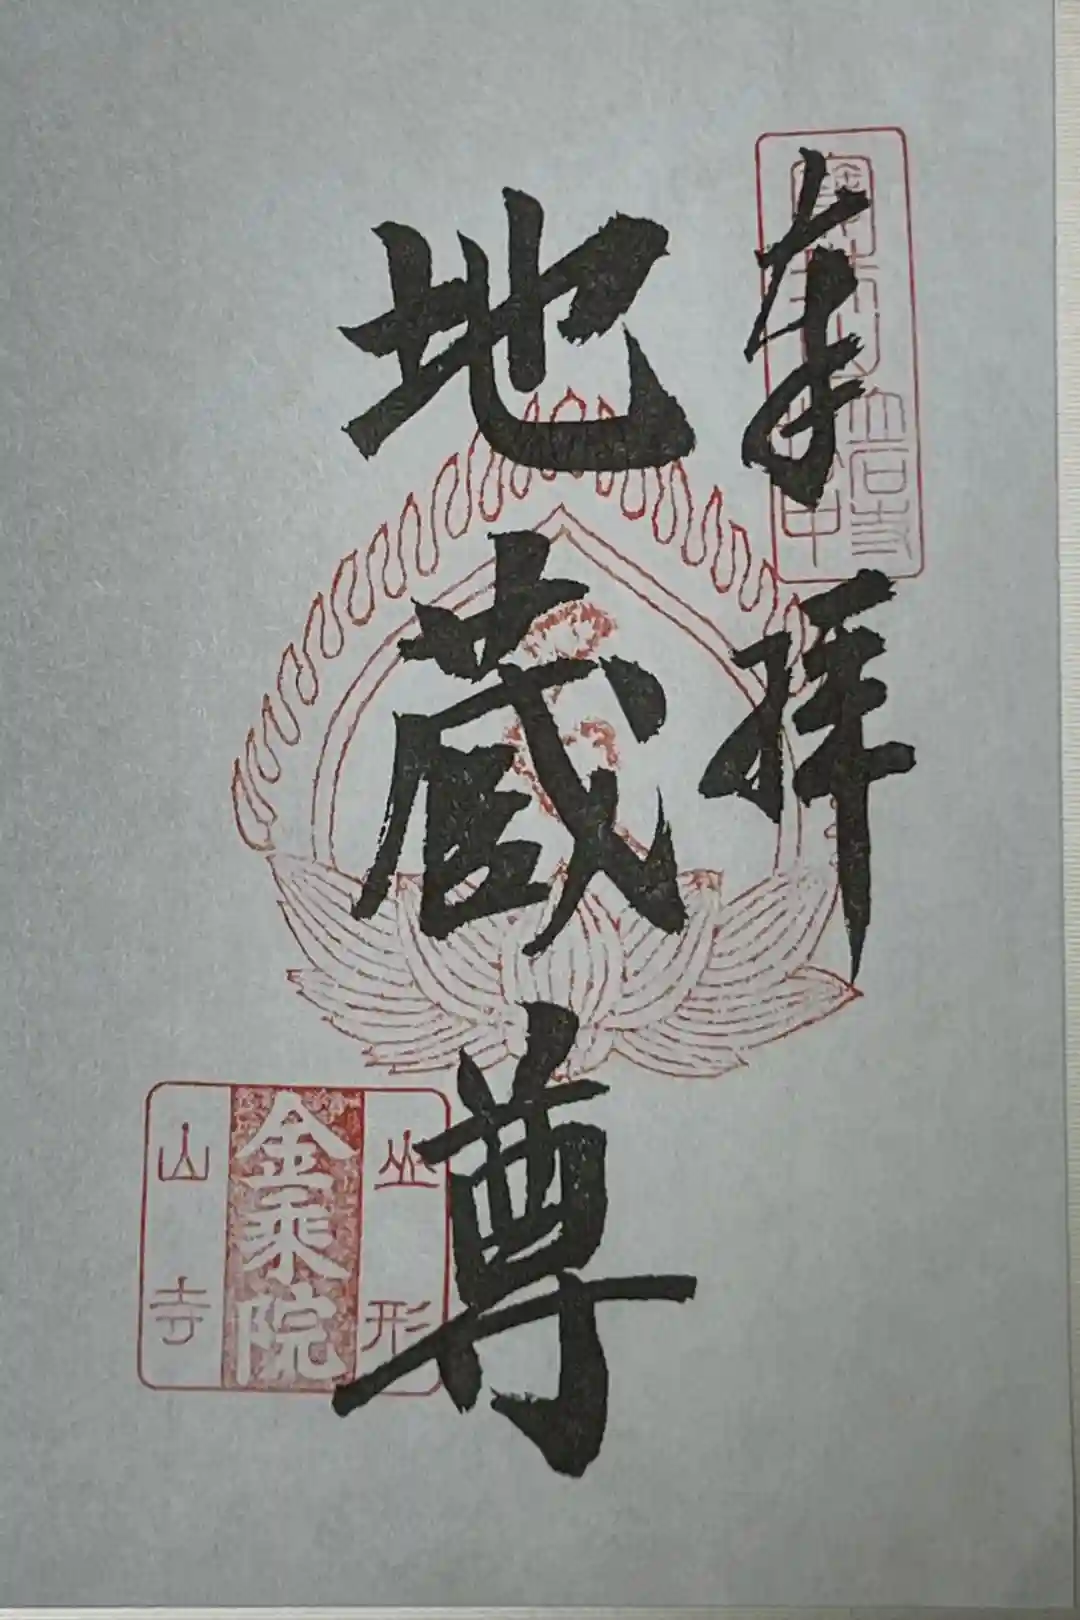 奉拝
地蔵尊
山形
金乗院
山寺